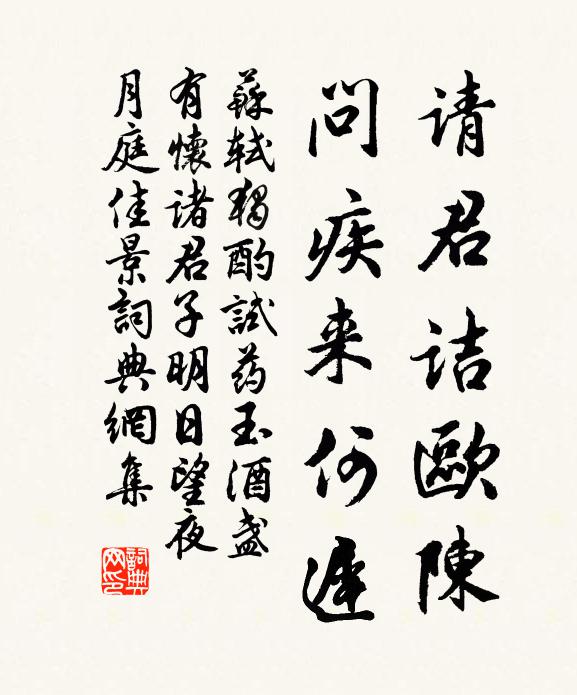 请君诘歐陳
問疾来何遲
蘇軾獨酌試药玉酒盏
有懷诸君子明日望夜
月庭佳景詞典網集
詞典
网印